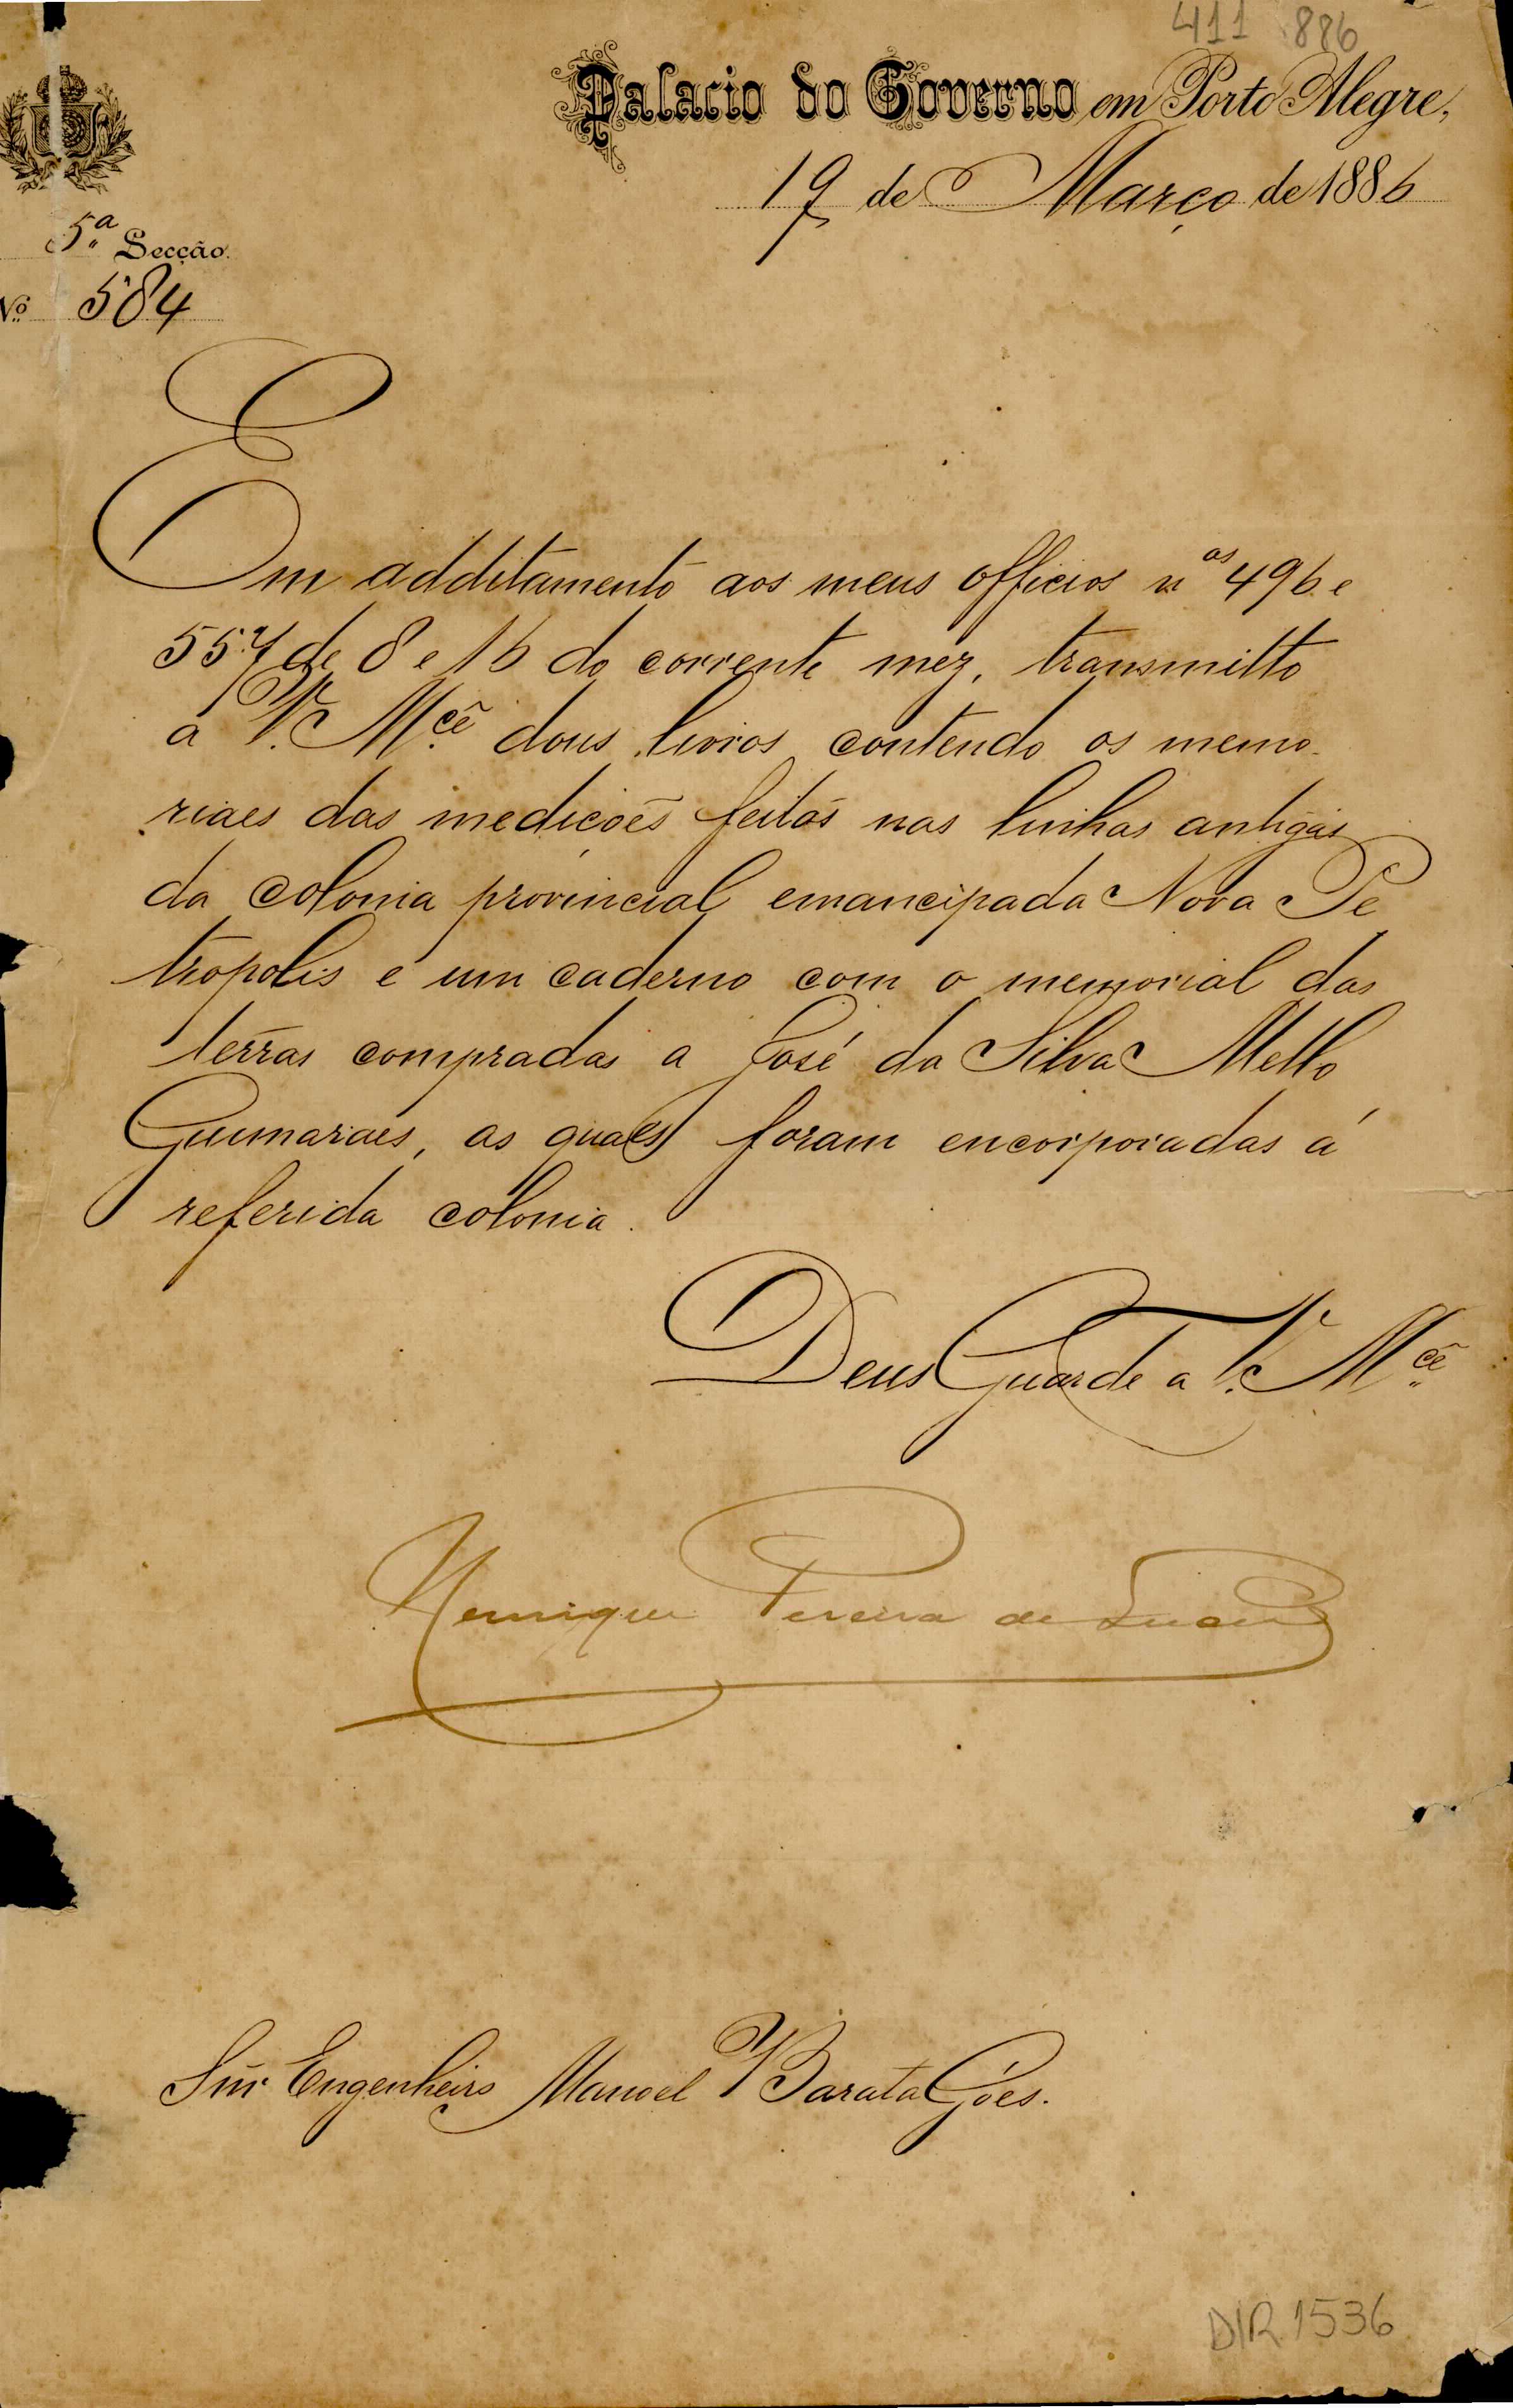 411 886
Palacio do Governo em Porto Alegre,
19 de Março de 1886
5ª Secção.
Nº 584
Em additamento aos meus officios nos 496 e
557 de 8 e 16 do corrente mez, transmitto
a V. Mcê dous livros contendo os memo-
riaes das medições feitas nas linhas antigas
da colonia provincial emancipada Nova Pe
tropolis e um caderno com o memorial das
terras compradas a José da Silva Mello
Guimarães, as quaes foram encorporadas á
referida colonia.
Deus Guarde a V. Mcê
Henrique Pereira de Lucena
Snr Engenheiro Manoel Barata Góes.
DIR 1536